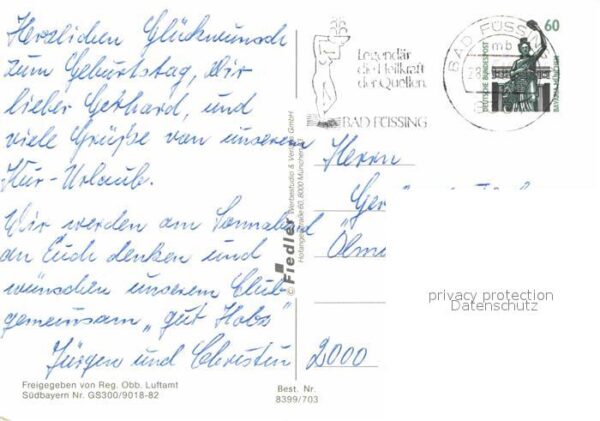 Herzlichen Glückwunsch
zum Geburtstag, Dir
lieber Gerhard, und
viele Grüße von unserem
Kur-Urlaub.
Wir werden am Sonnabend
an Euch denken und
wünschen unserem Club
gemeinsam „gut Holz"
Jürgen und Christin
Freigegeben von Reg. Obb. Luftamt
Südbayern Nr. GS300/9018-82
Best. Nr.
8399/703
© Fiedler Werbestudio & Verlags GmbH
8000 München
Legendär
die Heilkraft
der Quellen.
BAD FÜSSING
BAD FÜSSING
mb
60
DEUTSCHE BUNDESPOST
BAVARIA MÜNCHEN
Herrn
Ger
2000
privacy protection
Datenschutz